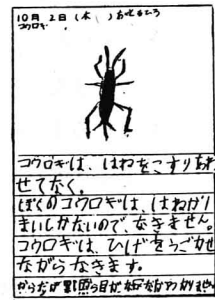 10月2日(木)
コウロギ
コウロギは、はねをこすりあわ
せてなく。
ぼくのコウロギは、はねが1
まいしかないので、なきません。
コウロギは、ひげをうごかせ
ながらなきます。
からだが黒いから目が